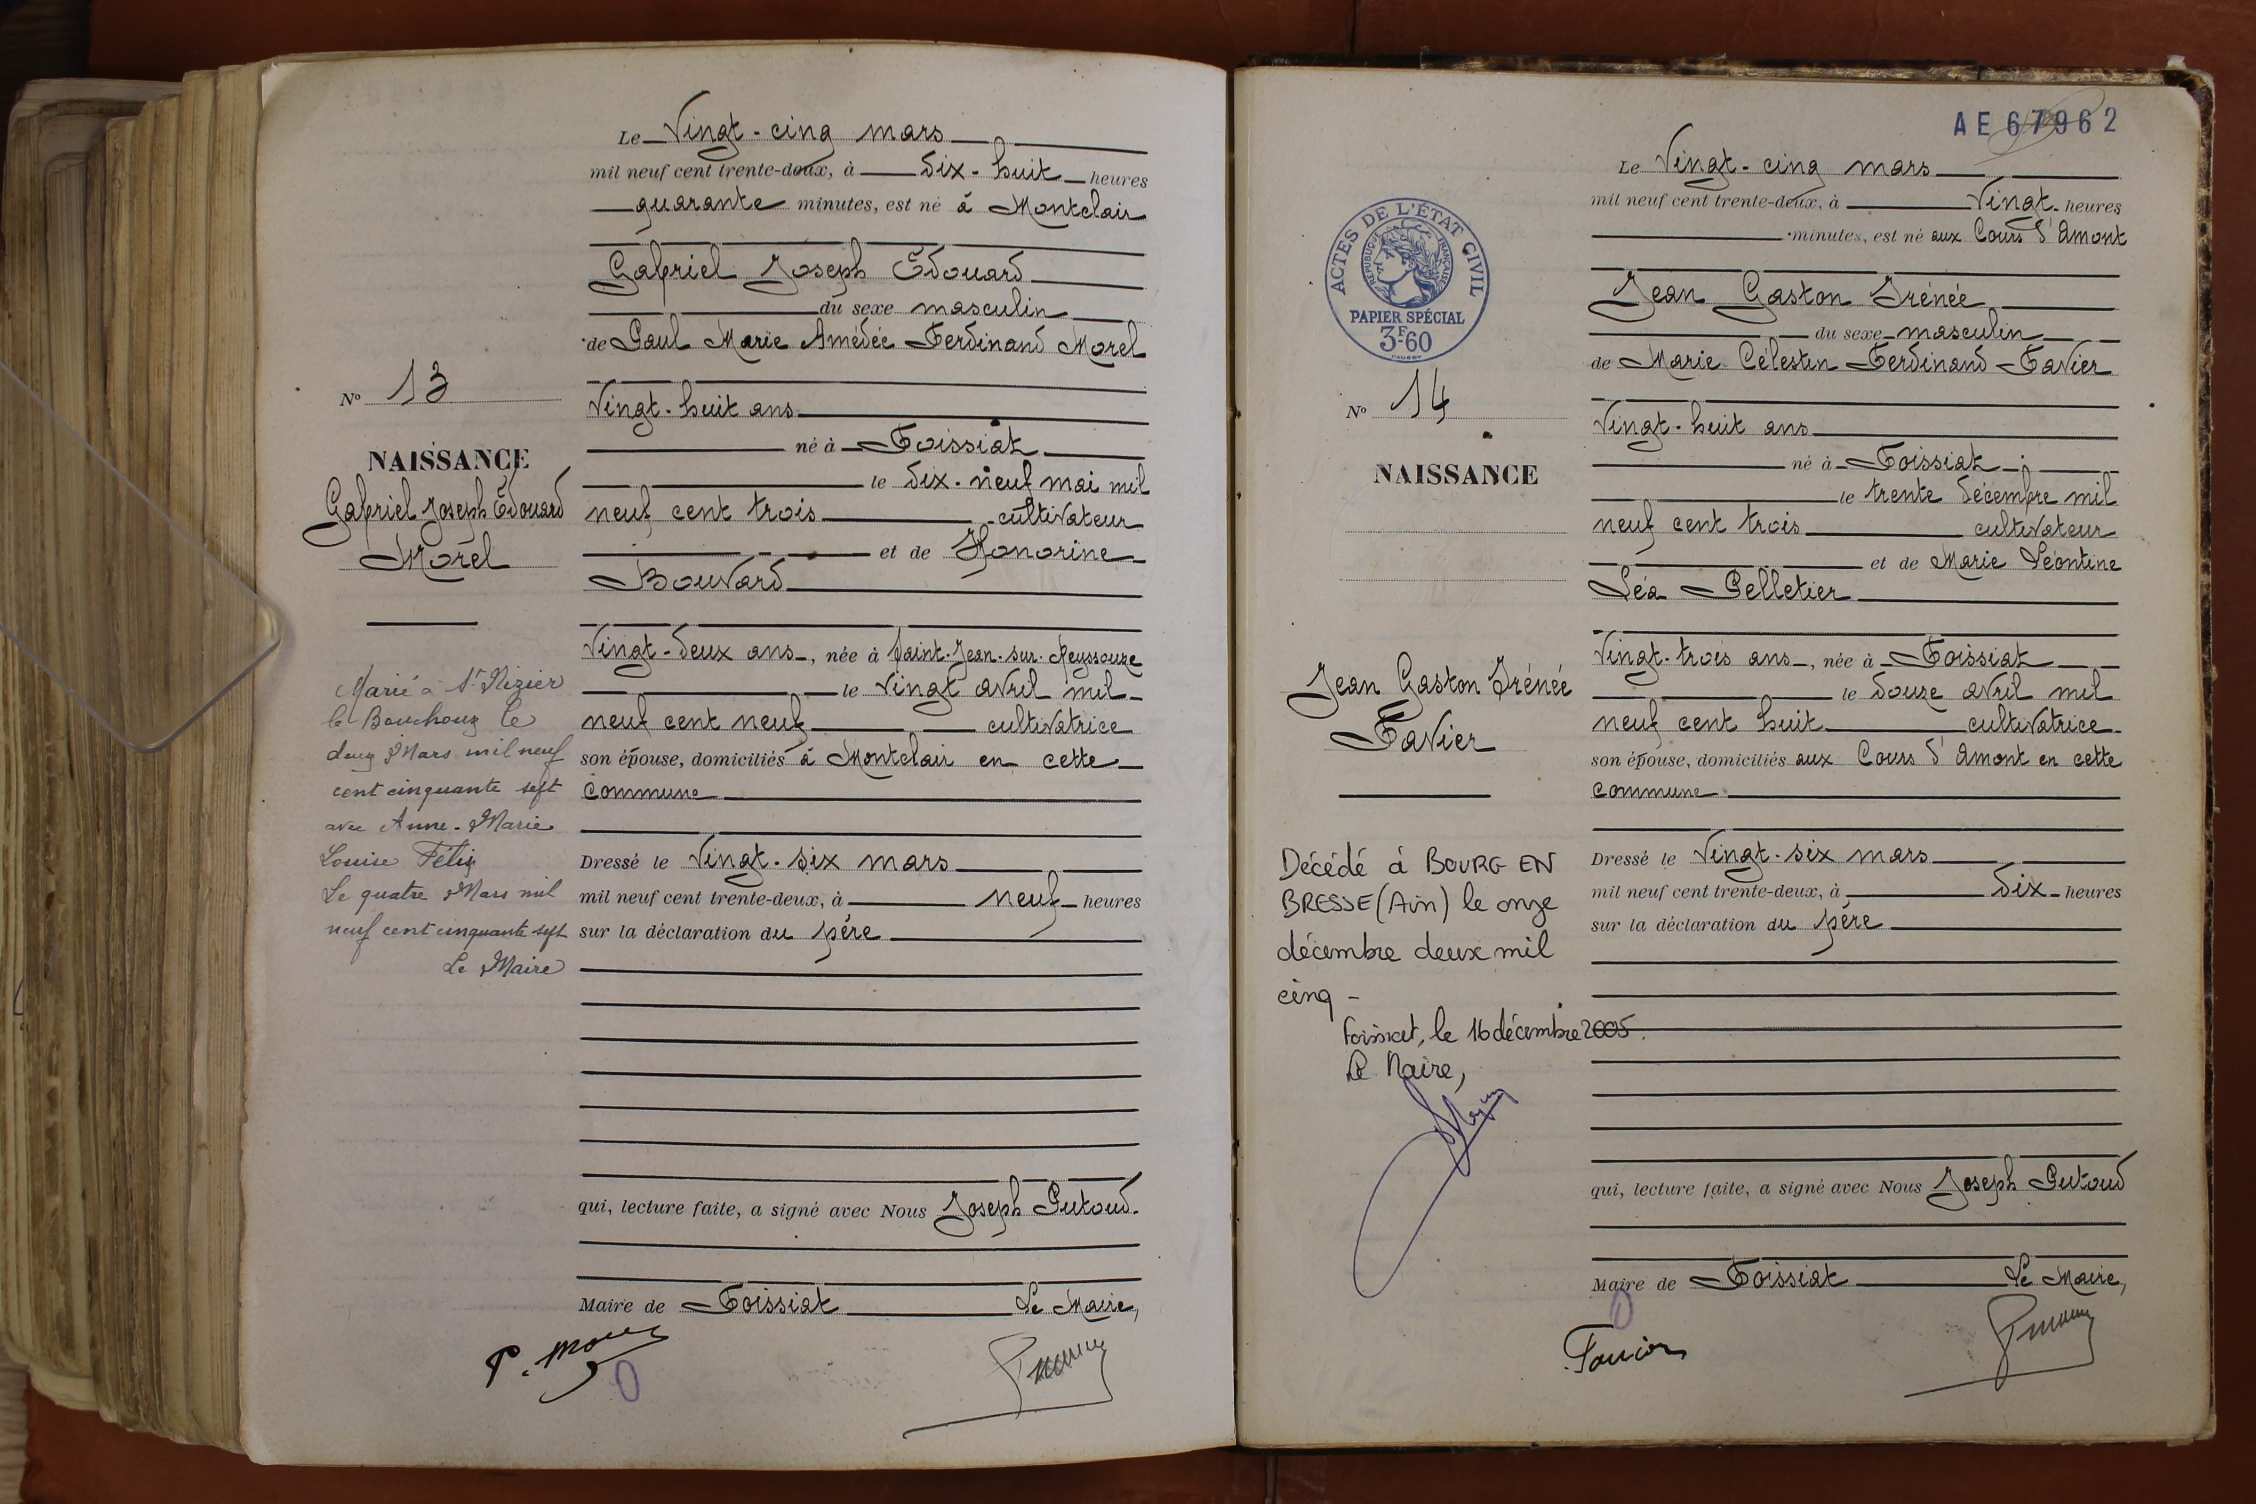 Le Vingt-cinq mars
mil neuf cent trente-deux, à dix-huit heures
quarante minutes, est né à Montclair
Gabriel Joseph Édouard
du sexe masculin
de Paul Marie Amédée Ferdinand Morel
Vingt-huit ans
né à Foissiat
le dix-neuf mai mil
neuf cent trois cultivateur
et de Honorine
Bouvard
Vingt-deux ans, née à Saint-Jean-sur-Reyssouze
le vingt avril mil
neuf cent neuf cultivatrice
son épouse, domiciliés à Montclair en cette
commune
Dressé le Vingt-six mars
mil neuf cent trente-deux, à neuf heures
sur la déclaration du père
qui, lecture faite, a signé avec Nous Joseph Putoud.
Maire de Foissiat Le Maire,
No 13
NAISSANCE
Gabriel Joseph Édouard
Morel
Marié à St Nizier
le Bouchoux le
deux Mars mil neuf
cent cinquante sept
avec Anne-Marie
Louise Félix
Le quatre Mars mil
neuf cent cinquante sept
Le Maire
AE 67962
Le Vingt-cinq mars
mil neuf cent trente-deux, à Vingt heures
minutes, est né aux Cours d'Amont
Jean Gaston Irénée
du sexe masculin
de Marie Célestin Ferdinand Favier
Vingt-huit ans
né à Foissiat
le trente décembre mil
neuf cent trois cultivateur
et de Marie Léontine
Léa Pelletier
Vingt-trois ans, née à Foissiat
le douze avril mil
neuf cent huit cultivatrice
son épouse, domiciliés aux Cours d'Amont en cette
commune
Dressé le Vingt-six mars
mil neuf cent trente-deux, à dix heures
sur la déclaration du père
qui, lecture faite, a signé avec Nous Joseph Putoud
Maire de Foissiat Le Maire,
ACTES DE L'ÉTAT CIVIL
RÉPUBLIQUE FRANÇAISE
PAPIER SPÉCIAL
3F60
No 14
NAISSANCE
Jean Gaston Irénée
Favier
Décédé à BOURG EN
BRESSE (Ain) le onze
décembre deux mil
cinq -
Foissiat, le 16 décembre 2005.
Le Maire,